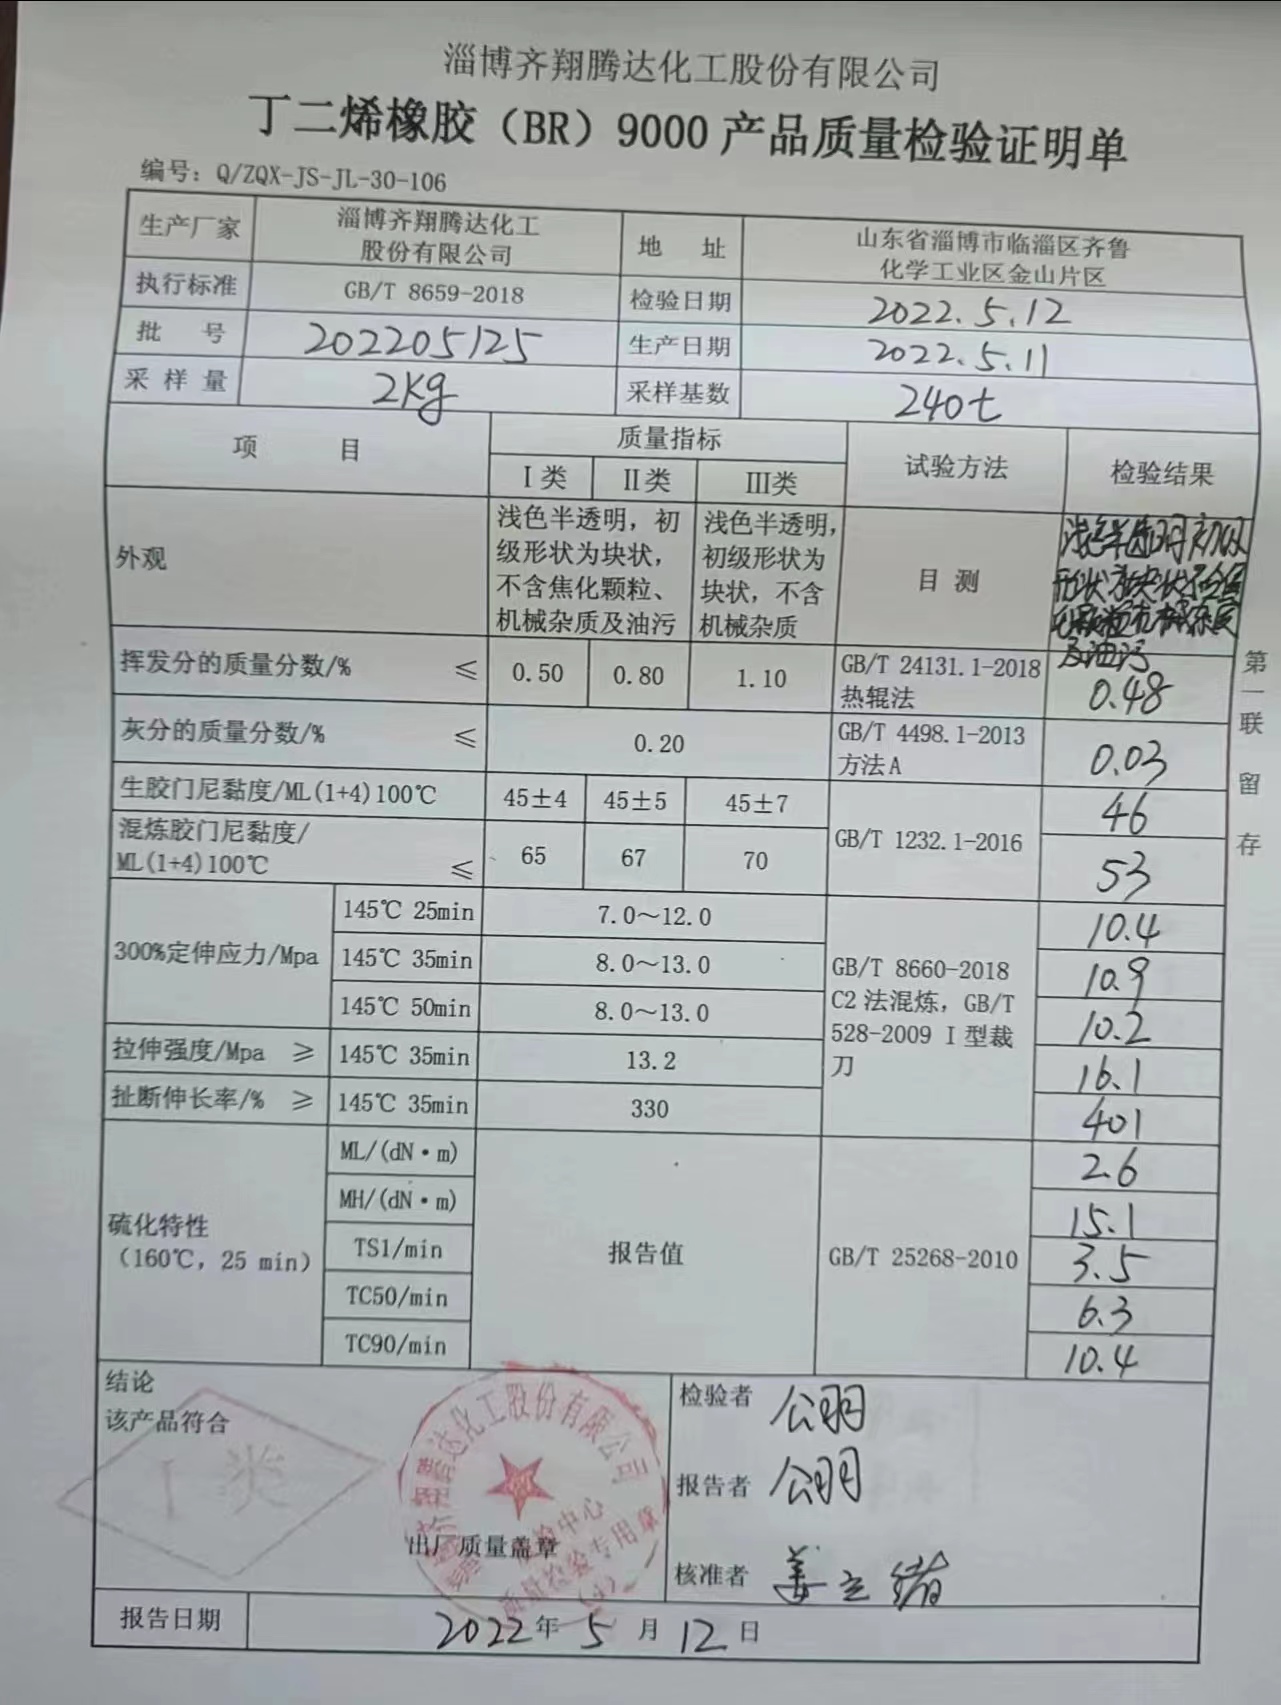 淄博齐翔腾达化工股份有限公司
丁二烯橡胶（BR）9000产品质量检验证明单
编号：Q/ZQX-JS-JL-30-106
生产厂家
淄博齐翔腾达化工
股份有限公司
地 址
山东省淄博市临淄区齐鲁
化学工业区金山片区
执行标准
GB/T 8659-2018
检验日期
2022.5.12
批 号
202205125
生产日期
2022.5.11
采 样 量
2kg
采样基数
240t
项 目
质量指标
试验方法
检验结果
Ⅰ类
Ⅱ类
Ⅲ类
外观
浅色半透明，初
级形状为块状，
不含焦化颗粒、
机械杂质及油污
浅色半透明，
初级形状为
块状，不含
机械杂质
目 测
浅色半透明 初级
形状为块状 不含焦
化颗粒 机械杂质
及油污
挥发分的质量分数/% ≤
0.50
0.80
1.10
GB/T 24131.1-2018
热辊法
0.48
灰分的质量分数/% ≤
0.20
GB/T 4498.1-2013
方法A
0.03
生胶门尼黏度/ML(1+4)100℃
45±4
45±5
45±7
GB/T 1232.1-2016
46
混炼胶门尼黏度/
ML(1+4)100℃ ≤
65
67
70
53
300%定伸应力/Mpa
145℃ 25min
7.0～12.0
GB/T 8660-2018
C2 法混炼，GB/T
528-2009 Ⅰ型裁
刀
10.4
145℃ 35min
8.0～13.0
10.9
145℃ 50min
8.0～13.0
10.2
拉伸强度/Mpa ≥
145℃ 35min
13.2
16.1
扯断伸长率/% ≥
145℃ 35min
330
401
硫化特性
（160℃，25 min）
ML/(dN·m)
报告值
GB/T 25268-2010
2.6
MH/(dN·m)
15.1
TS1/min
3.5
TC50/min
6.3
TC90/min
10.4
第一联 留存
结论
该产品符合
Ⅰ类
齐翔腾达化工股份有限公司
检验中心
质量检验专用章
出厂质量盖章
检验者
报告者
核准者
报告日期
2022年5月12日